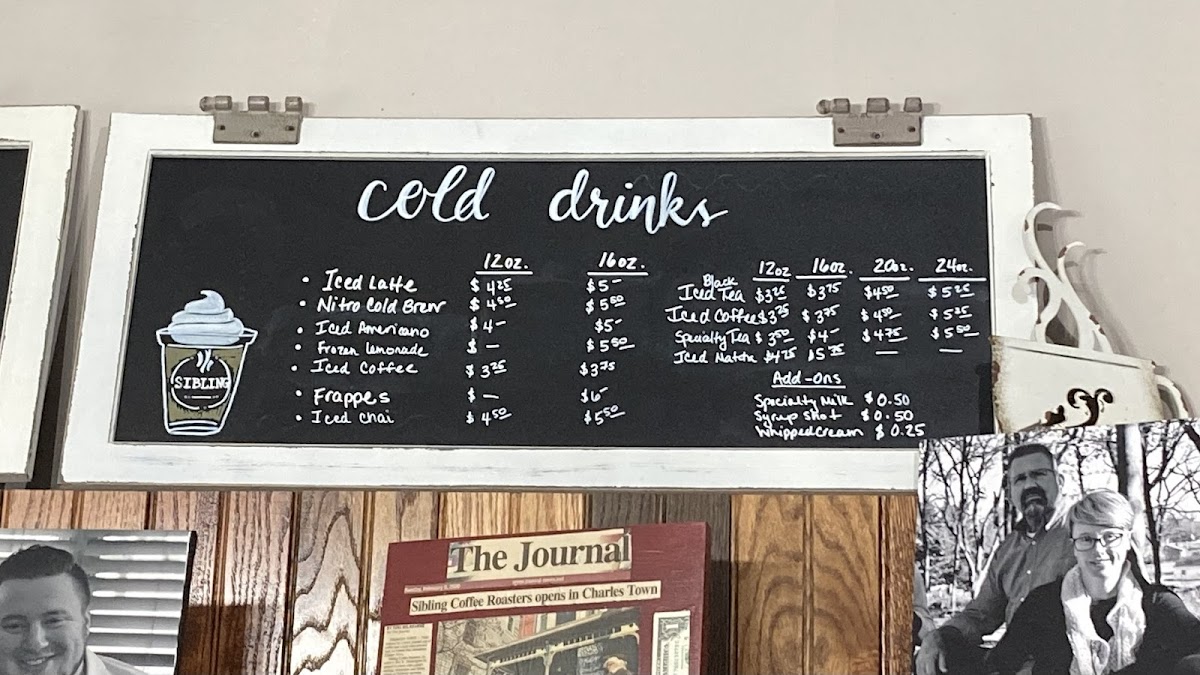 cold drinks
12oz. 16oz.
• Iced Latte $4.25 $5-
• Nitro Cold Brew $4.50 $5.50
• Iced Americano $4- $5-
• Frozen Lemonade $- $5.50
• Iced Coffee $3.25 $3.75
• Frappes $- $6-
• Iced Chai $4.50 $5.50
12oz 16oz. 20oz. 24oz.
Black
Iced Tea $3.25 $3.75 $4.50 $5.25
Iced Coffee $3.25 $3.75 $4.50 $5.25
Specialty Tea $3.50 $4- $4.75 $5.50
Iced Matcha $4.75 $5.75 — —
Add-ons
Specialty Milk $0.50
Syrup Shot $0.50
Whipped Cream $0.25
SIBLING
The Journal
Sibling Coffee Roasters opens in Charles Town